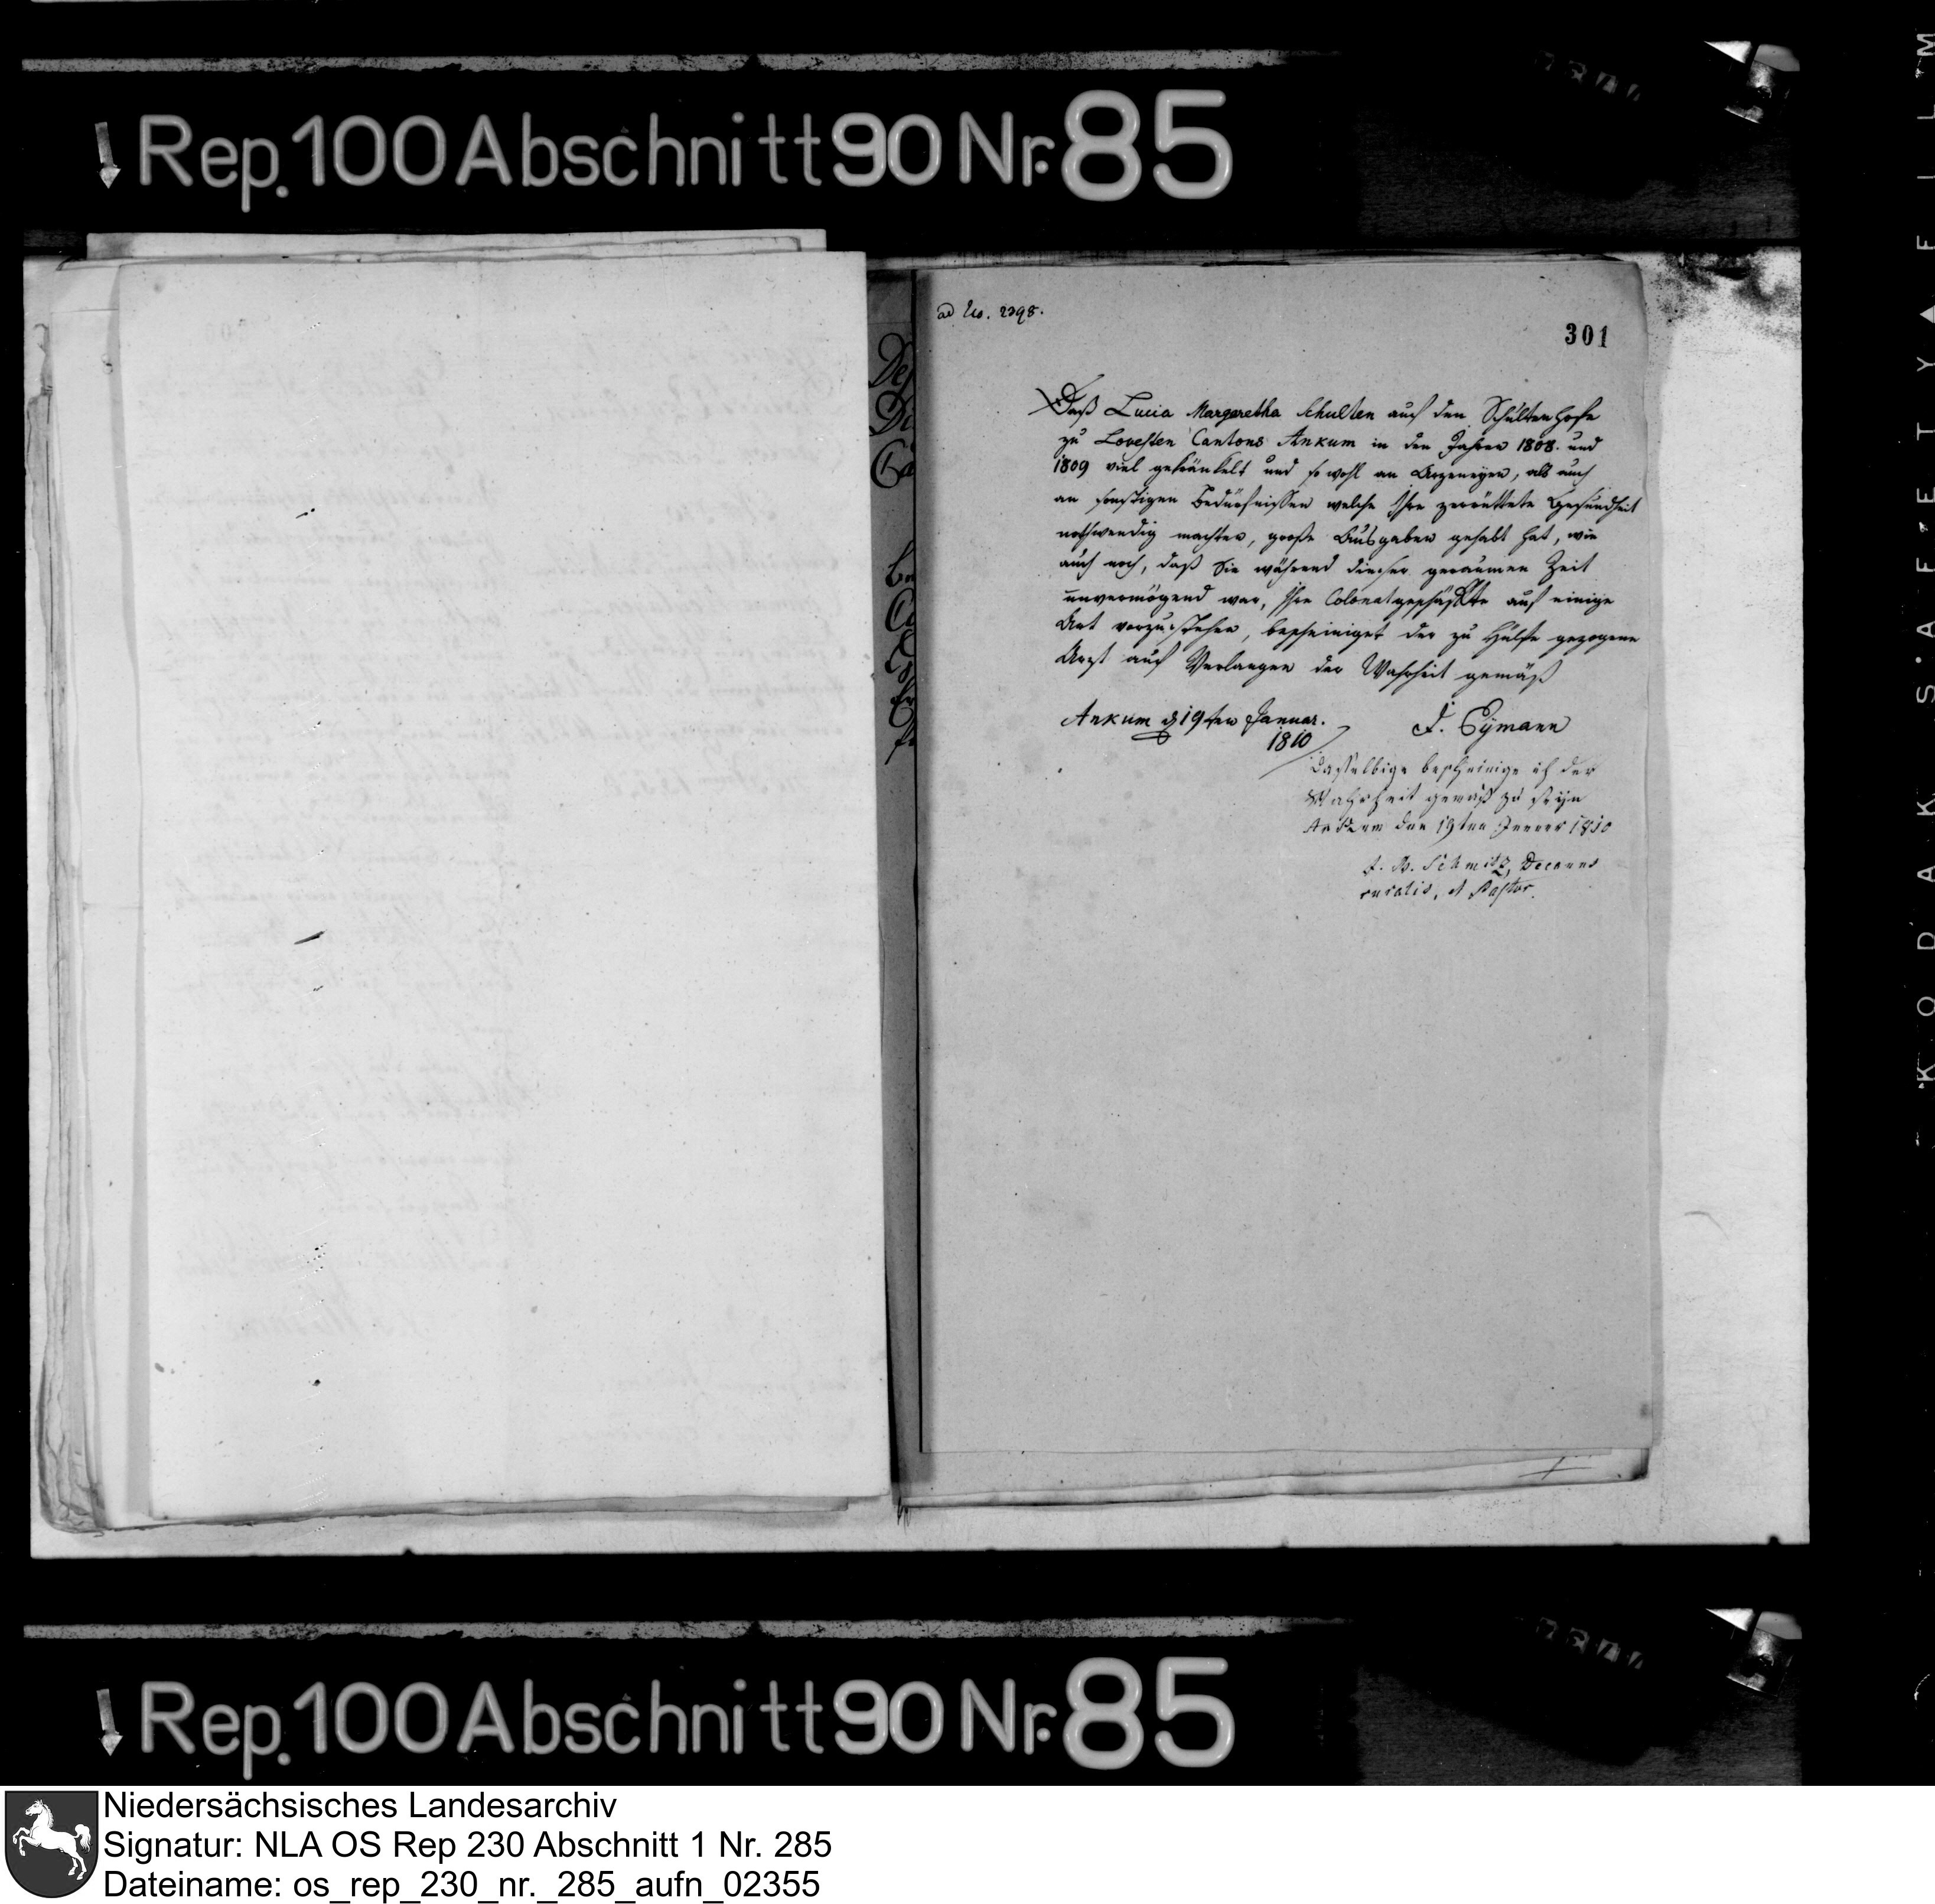 Rep. 100 Abschnitt 90 Nr. 85
ad No. 2398.
301
Daß Lucia Margaretha Schulten auf den Schultenhofe
zu Loxsten Cantons Ankum in den Jahren 1808. und
1809 viel gekränkelt und so wohl an Arzeneyen, als auch
an sonstigen Bedürfnissen welche Ihre zerrüttete Gesundheit
nothwendig machten, große Ausgaben gehabt hat, wie
auch noch, daß Sie während dieser geraumen Zeit
unvermögend war, Ihre Colonatgeschäffte auf einige
Art vorzustehen, bescheiniget der zu Hülfe gezogene
Arzt auf Verlangen der Wahrheit gemäß
Ankum d 19ten Januar. F. Eymann
1810
Dasselbige bescheinige ich der
Wahrheit gemäß zu seyn
Ankum den 19ten Jenner 1810
Schmitz, Decanus
ruralis, et Pastor.
KODAK SAFETY FILM
Rep. 100 Abschnitt 90 Nr. 85
Niedersächsisches Landesarchiv
Signatur: NLA OS Rep 230 Abschnitt 1 Nr. 285
Dateiname: os_rep_230_nr._285_aufn_02355